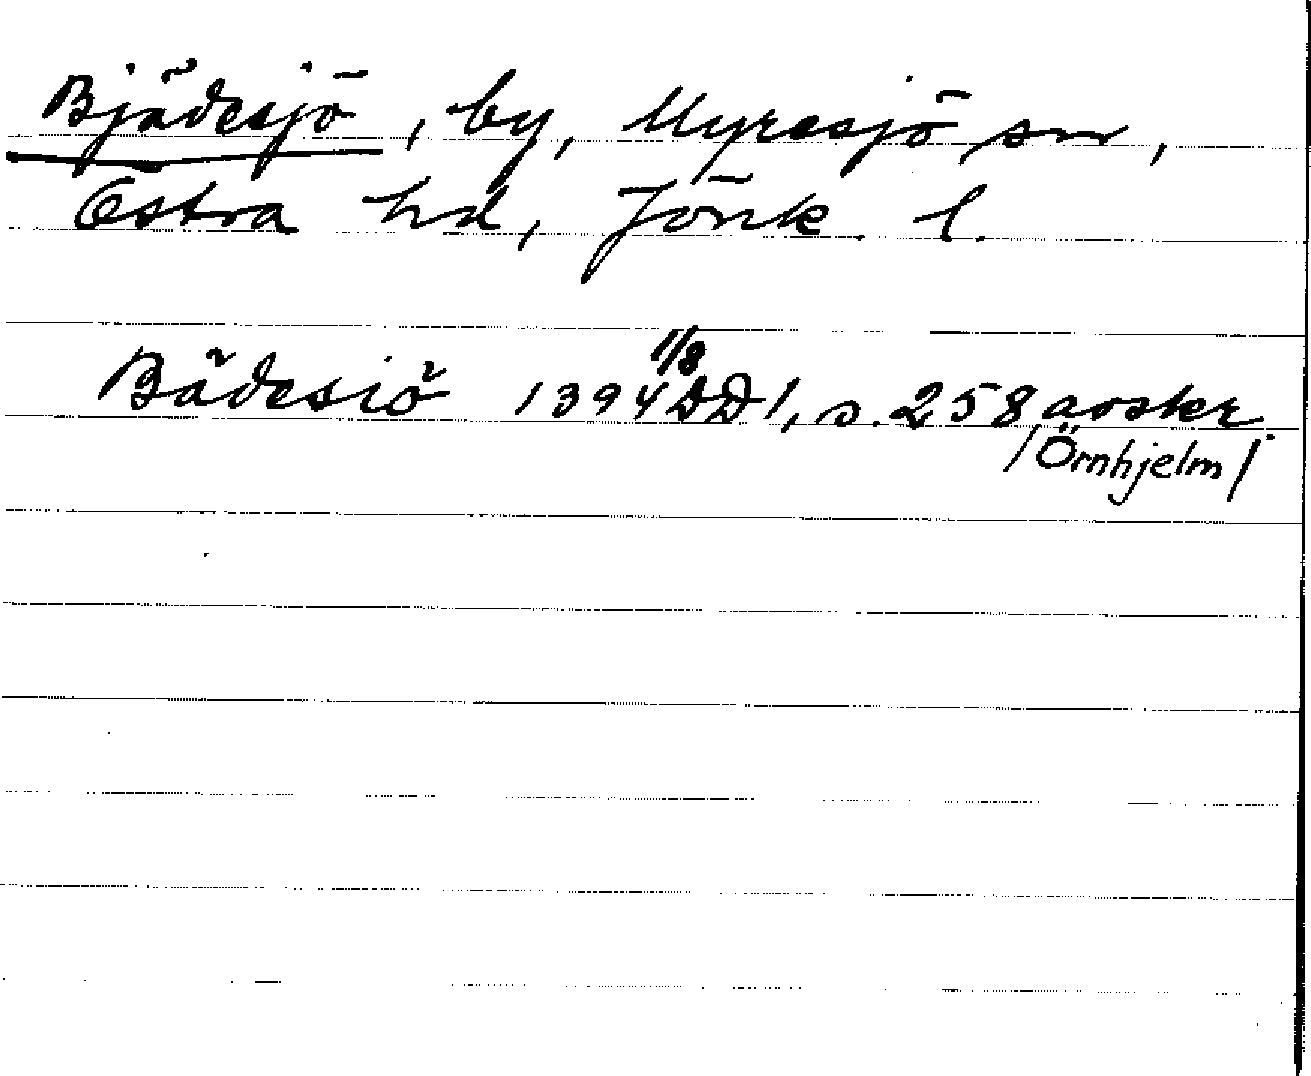 Bjädesjö, by, Myresjö sn,
Östra hd, Jönk. l.
Bädesiö 1394 1/8 DD1, s. 258 avskr.
/Örnhjelm/